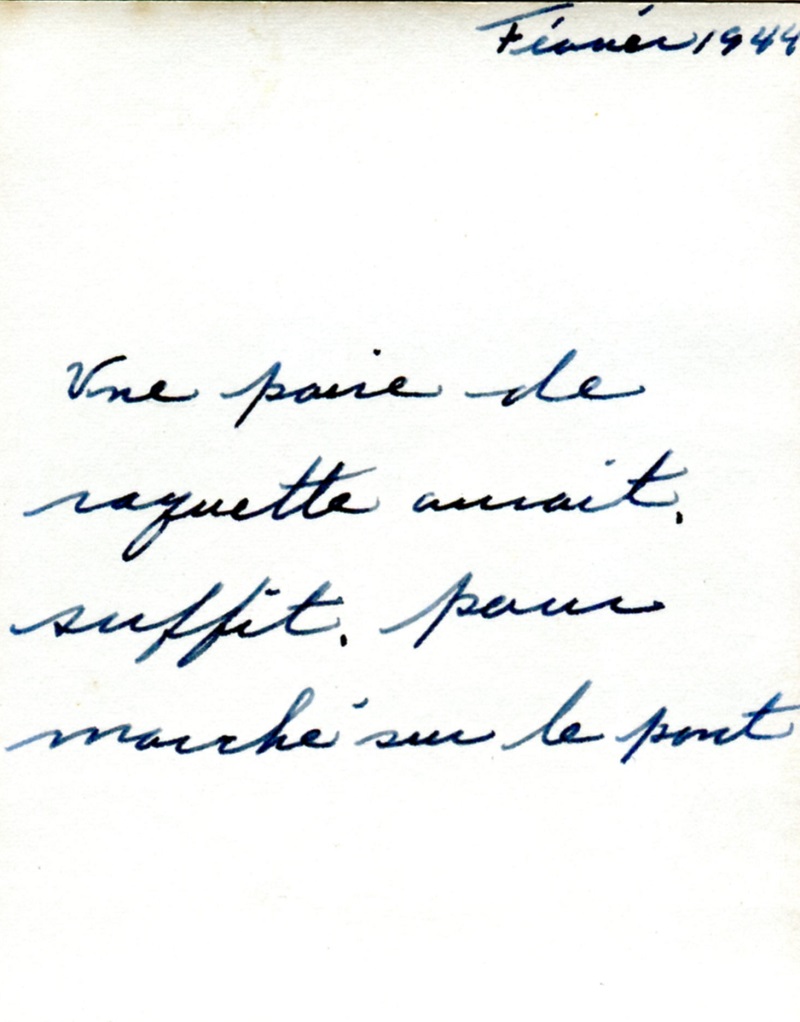 Février 1944
Une paire de
raquette aurait.
suffit. pour
marché sur le pont